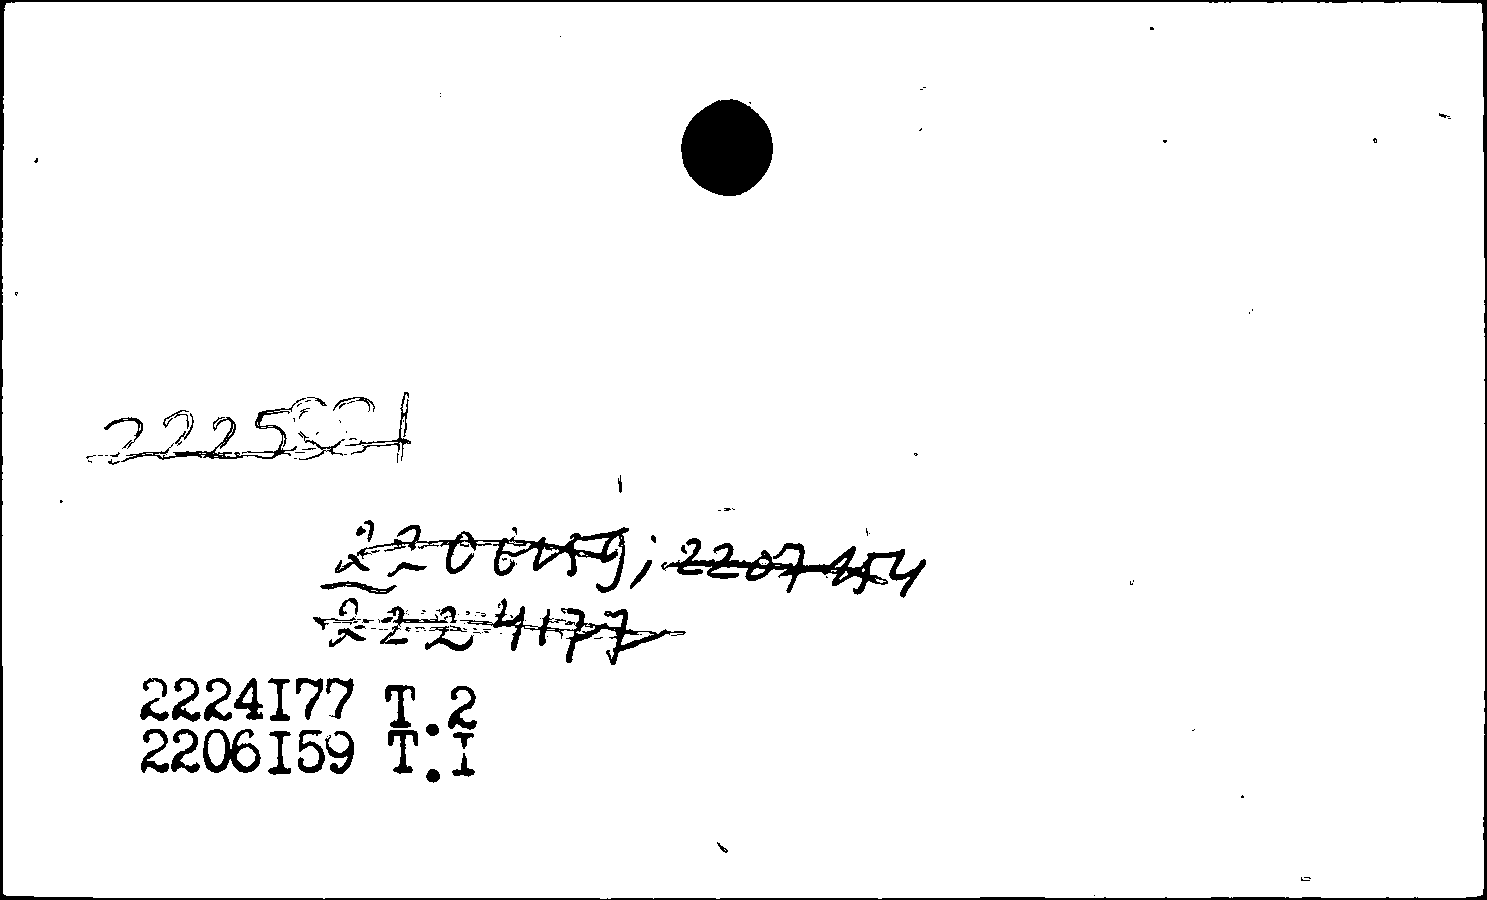 2206159; 2207154
2224177
2224I77 T.2
2206I59 T.I